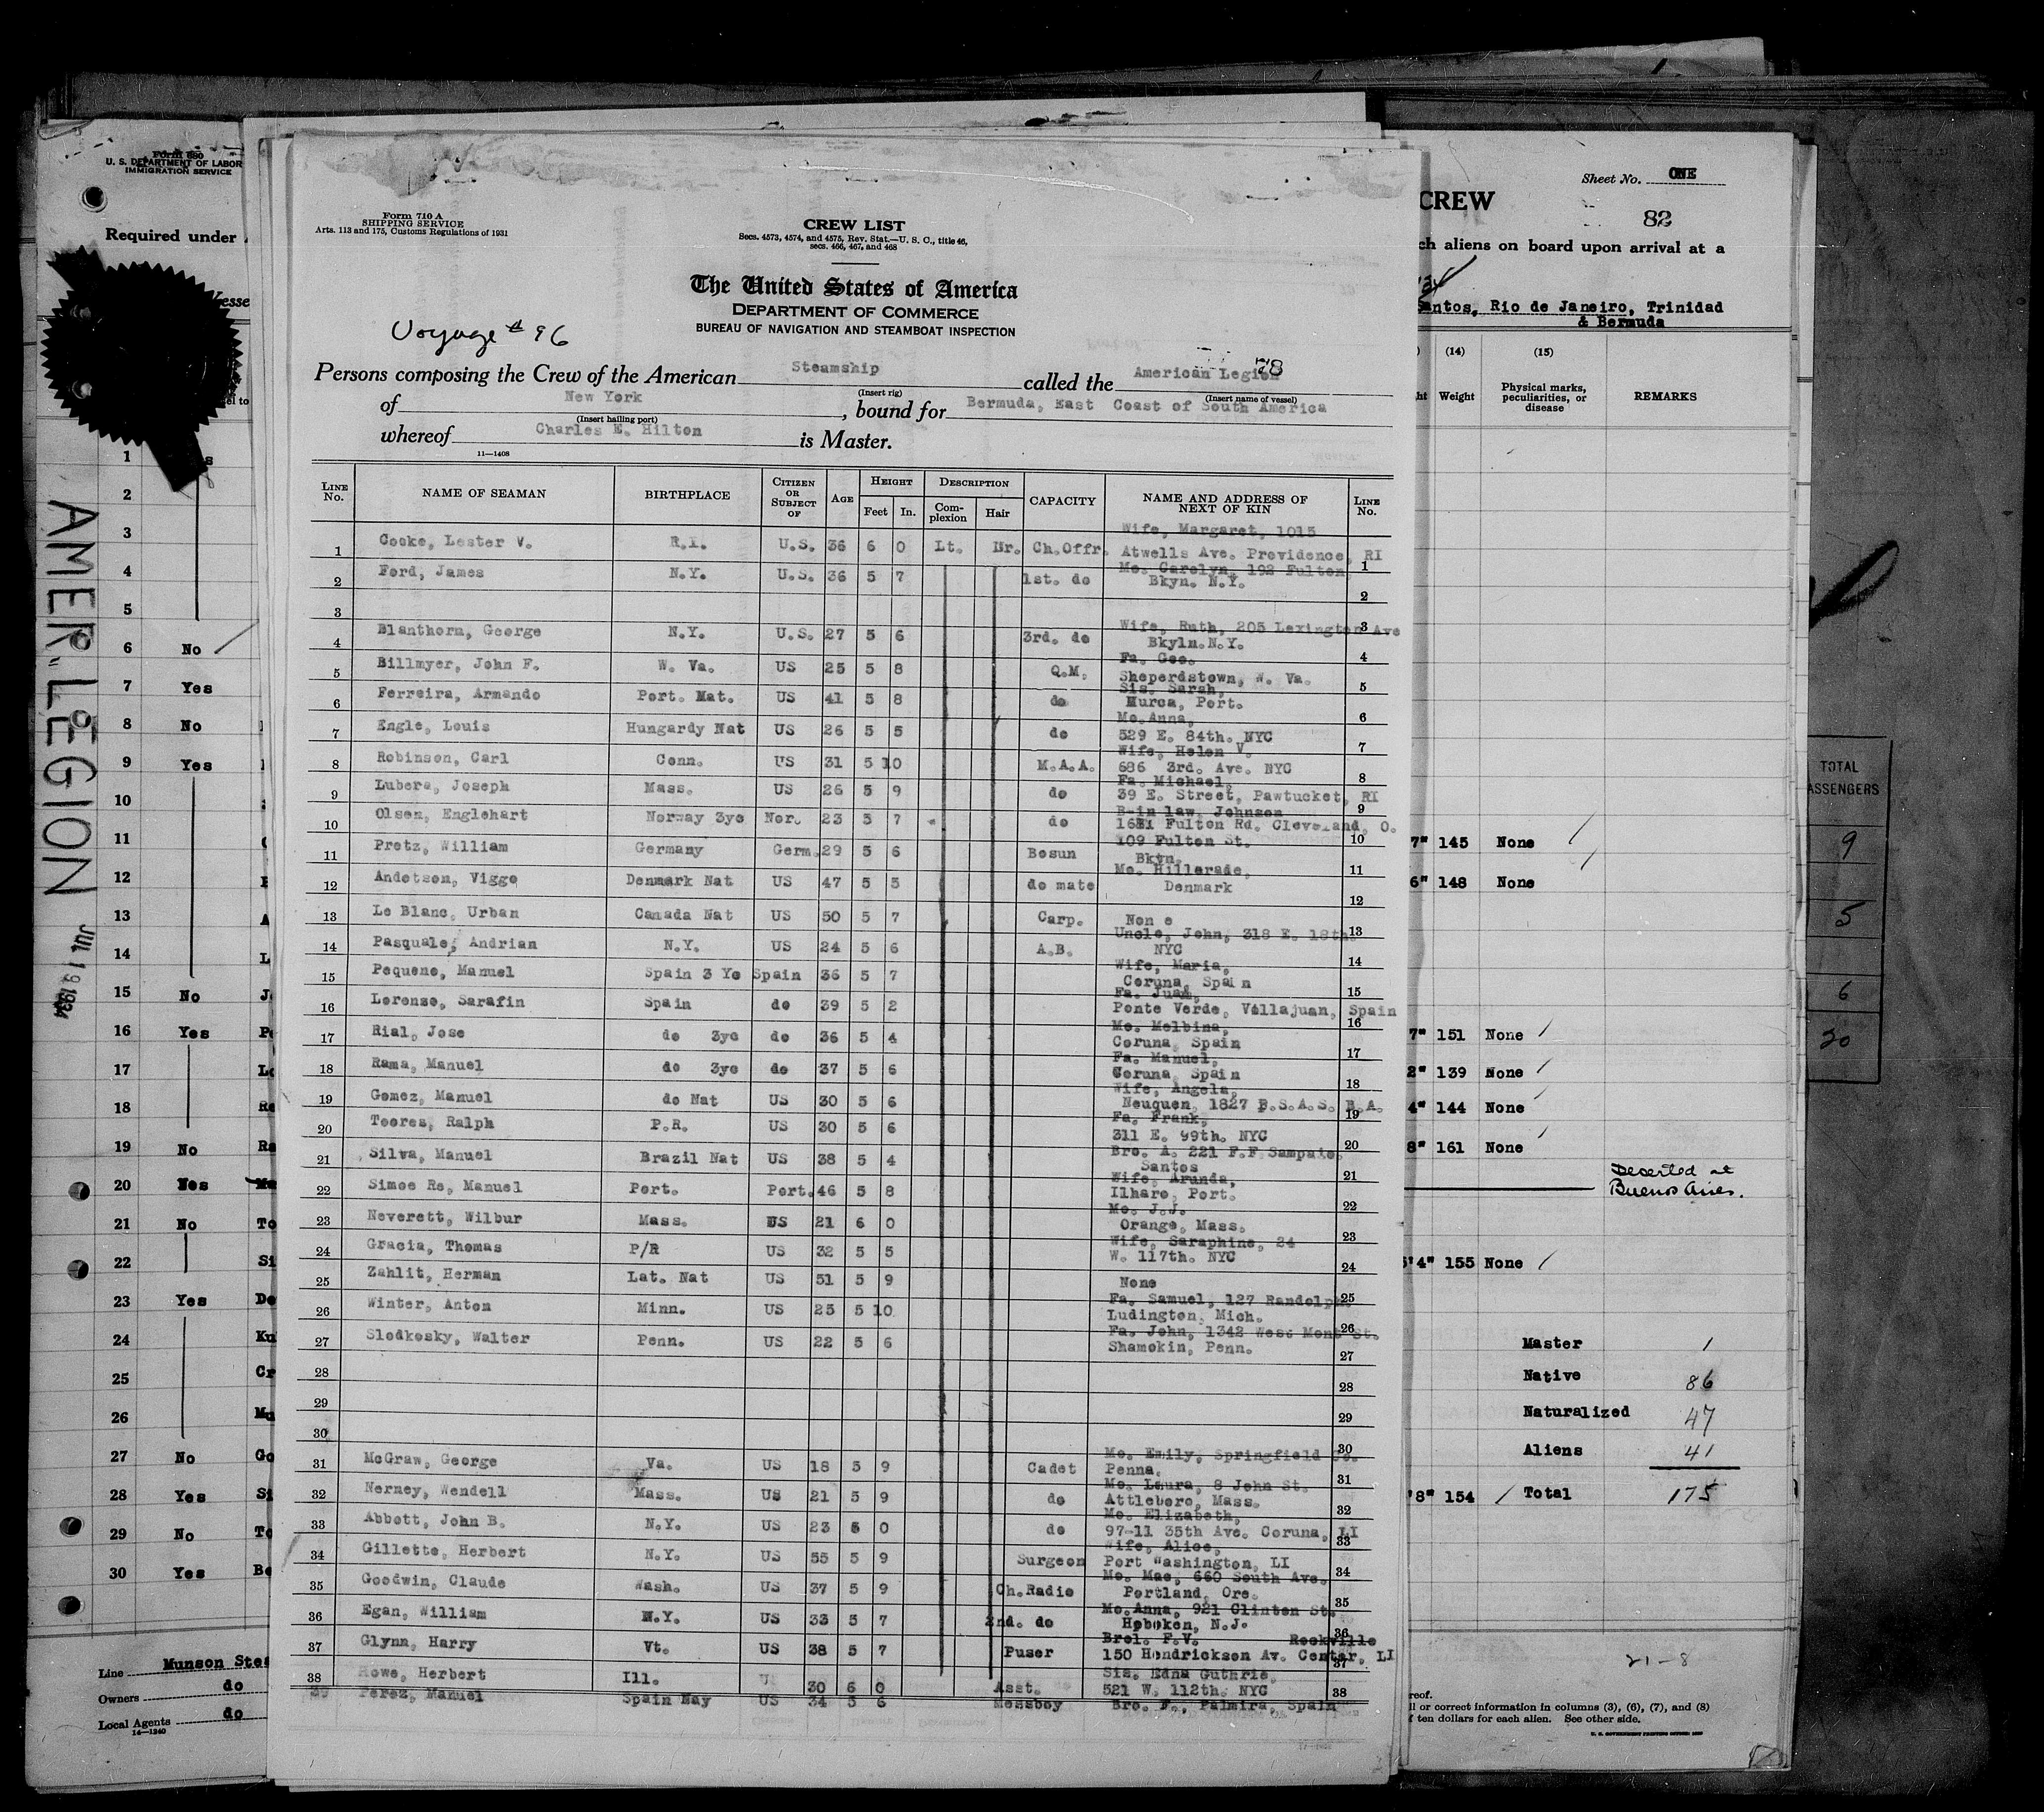 Form 680
U. S. DEPARTMENT OF LABOR
IMMIGRATION SERVICE
Required under
Vesse
AMER. LEGION
JUL 19 1934
1
2
3
4
5
6 No
7 Yes
8 No
9 Yes
10
11
12
13
14
15 No
16 Yes
17
18
19 No
20
21 No
22
23 Yes
24
25
26
27 No
28 Yes
29 No
30 Yes
Line Munson Stea
Owners do
Local Agents do
14—1240
Form 710 A
SHIPPING SERVICE
Arts. 113 and 175, Customs Regulations of 1931
CREW LIST
Secs. 4573, 4574, and 4575, Rev. Stat.—U. S. C., title 46,
secs. 466, 467, and 468
The United States of America
DEPARTMENT OF COMMERCE
BUREAU OF NAVIGATION AND STEAMBOAT INSPECTION
Voyage # 96
Persons composing the Crew of the American Steamship called the American Legion
(Insert rig) (Insert name of vessel)
of New York, bound for Bermuda, East Coast of South America
(Insert hailing port)
whereof Charles E. Hilton is Master.
11—1408
LINE No. NAME OF SEAMAN BIRTHPLACE CITIZEN OR SUBJECT OF AGE HEIGHT Feet In. DESCRIPTION Complexion Hair CAPACITY NAME AND ADDRESS OF NEXT OF KIN LINE No.
Wife, Margaret, 1015
1 Cooke, Lester V. R.I. U.S. 36 6 0 Lt. Br. Ch.Offr. Atwells Ave. Providence, RI 1
Mo. Carolyn, 192 Fulton
2 Ford, James N.Y. U.S. 36 5 7 1st. do Bkyn. N.Y. 2
3 3
Wife, Ruth, 205 Lexington Ave
4 Blanthorn, George N.Y. U.S. 27 5 6 3rd. do Bkyln.N.Y. 4
Fa. Geo.
5 Billmyer, John F. W. Va. US 25 5 8 Q.M. Sheperdstown, W. Va. 5
Sis. Sarah,
6 Ferreira, Armando Port. Nat. US 41 5 8 do Murca, Port. 6
Mo.Anna,
7 Engle, Louis Hungardy Nat US 26 5 5 do 529 E. 84th. NYC 7
Wife, Helen V.
8 Robinson, Carl Conn. US 31 5 10 M.A.A. 686 3rd. Ave. NYC 8
Fa. Michael,
9 Lubera, Joseph Mass. US 26 5 9 do 39 E. Street, Pawtucket, RI 9
B-in law, Johnson
10 Olsen, Englehart Norway 3yo Nor. 23 5 7 do Fulton Rd. Cleveland, O. 10
109 Fulton St.
11 Pretz, William Germany Germ. 29 5 6 Bosun Bkyn. 11
Mo. Hillerade,
12 Andetsen, Viggo Denmark Nat US 47 5 5 do mate Denmark 12
13 Le Blanc, Urban Canada Nat US 50 5 7 Carp. Non e 13
Uncle, John, 318 E. 18th.
14 Pasquale, Andrian N.Y. US 24 5 6 A.B. NYC 14
Wife, Maria,
15 Pequeno, Manuel Spain 3 Yo Spain 36 5 7 Coruna, Spain 15
Fa. Juan,
16 Lorenzo, Sarafin Spain do 39 5 2 Ponte Verde, Villajuan, Spain 16
Mo. Melbina,
17 Rial, Jose do 3yo do 36 5 4 Coruna, Spain 17
Fa. Manuel,
18 Rama, Manuel do 3yo do 37 5 6 Coruna, Spain 18
Wife, Angela,
19 Gomez, Manuel do Nat US 30 5 6 Neuquen, 1827 B.S.A.S. B.A. 19
Fa. Frank,
20 Toores, Ralph P.R. US 30 5 6 311 E. 99th. NYC 20
Bro. A. 221 F.F Sampaio,
21 Silva, Manuel Brazil Nat US 38 5 4 Santos 21
Wife, Arunda,
22 Simoe Re, Manuel Port. Port. 46 5 8 Ilharo, Port. 22
Mo. J.J.
23 Neverett, Wilbur Mass. US 21 6 0 Orange, Mass. 23
Wife, Saraphine, 24
24 Gracia, Thomas P/R US 32 5 5 W. 117th. NYC 24
25 Zahlit, Herman Lat. Nat US 51 5 9 None 25
Fa. Samuel, 127 Randolph.
26 Winter, Anton Minn. US 25 5 10 Ludington, Mich. 26
Fa. John, 1342 West Mont St.
27 Slodkosky, Walter Penn. US 22 5 6 Shamokin, Penn. 27
28 28
29 29
30 30
Mo. Emily, Springfield Co.
31 McGraw, George Va. US 18 5 9 Cadet Penna. 31
Mo. Laura, 8 John St.
32 Nerney, Wendell Mass. US 21 5 9 do Attleboro, Mass. 32
Mo. Elizabeth,
33 Abbott, John B. N.Y. US 23 6 0 do 97-11 35th Ave. Coruna, LI 33
Wife, Alice,
34 Gillette, Herbert N.Y. US 55 5 9 Surgeon Port Washington, LI 34
Mo. Mae, 660 South Ave.
35 Goodwin, Claude Wash. US 37 5 9 Ch.Radio Portland, Ore. 35
Mo.Anna, 921 Clinton St.
36 Egan, William N.Y. US 33 5 7 2nd. do Hoboken, N.J. 36
Brol. F.V. Rockville
37 Glynn, Harry Vt. US 38 5 7 Puser 150 Hendrickson Av. Center, LI 37
Sis. Edna Guthrie,
38 Howe, Herbert Ill. 30 6 0 Asst. 521 W. 112th. NYC 38
39 Perez, Manuel Spain Nay US 34 5 6 Messboy Bro. F., Palmira, Spain
Sheet No. ONE
CREW
82
ch aliens on board upon arrival at a
Santos, Rio de Janeiro, Trinidad
& Bermuda
(14) (15)
Weight Physical marks, peculiarities, or disease REMARKS
7" 145 None
6" 148 None
7" 151 None
2" 139 None
4" 144 None
8" 161 None
Deserted at
Buenos Aires.
5'4" 155 None
Master 1
Native 86
Naturalized 47
Aliens 41
'8" 154 Total 175
21-8
reof.
ll or correct information in columns (3), (6), (7), and (8)
f ten dollars for each alien. See other side.
TOTAL
ASSENGERS
9
5
6
20